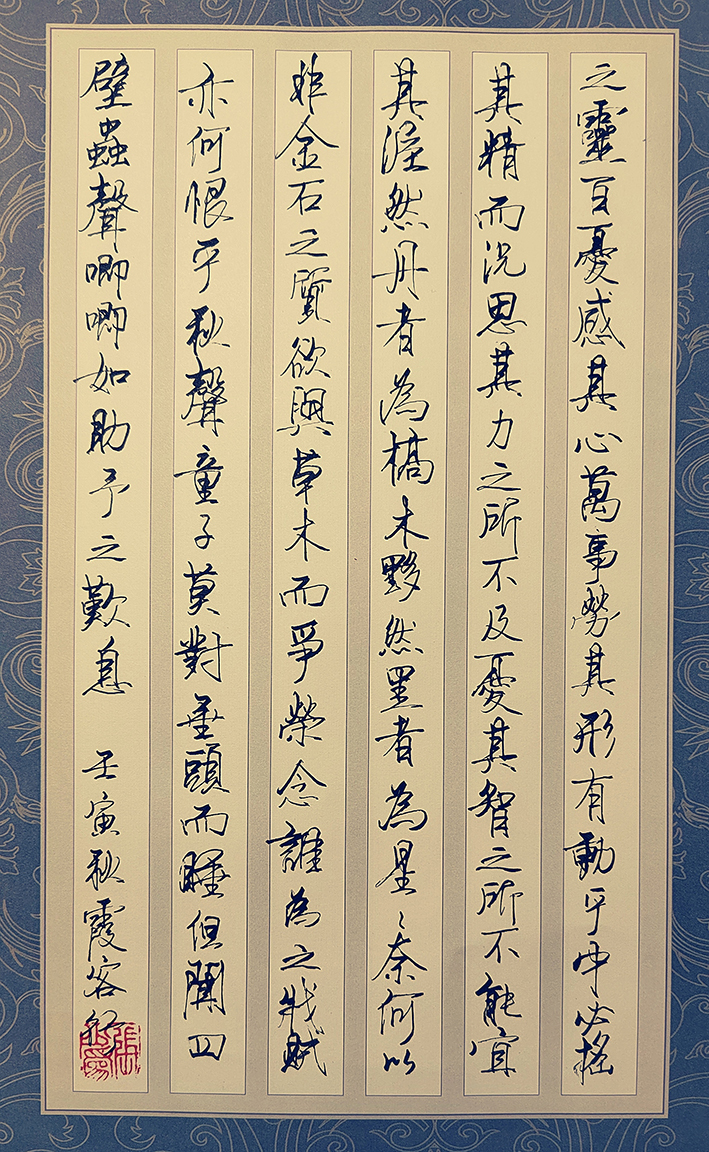 之靈百憂感其心萬事勞其形有動乎中必搖
其精而況思其力之所不及憂其智之所不能宜
其渥然丹者為槁木黟然黑者為星〻奈何以
非金石之質欲與草木而爭榮念誰為之戕賊
亦何恨乎秋聲童子莫對垂頭而睡但聞四
壁蟲聲唧唧如助予之歎息 壬寅秋霞客